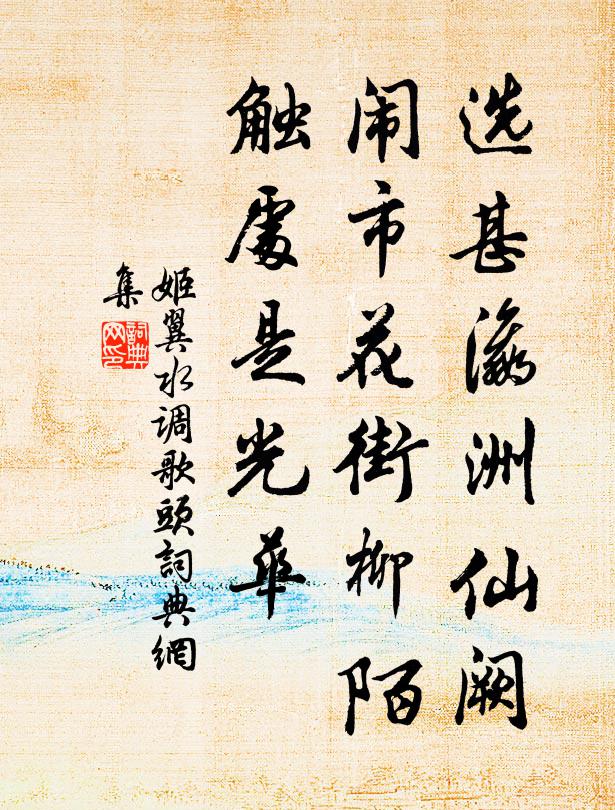 选甚瀛洲仙阙
闹市花街柳陌
触處是光华
姬翼水调歌頭詞典網
集
詞典
网印